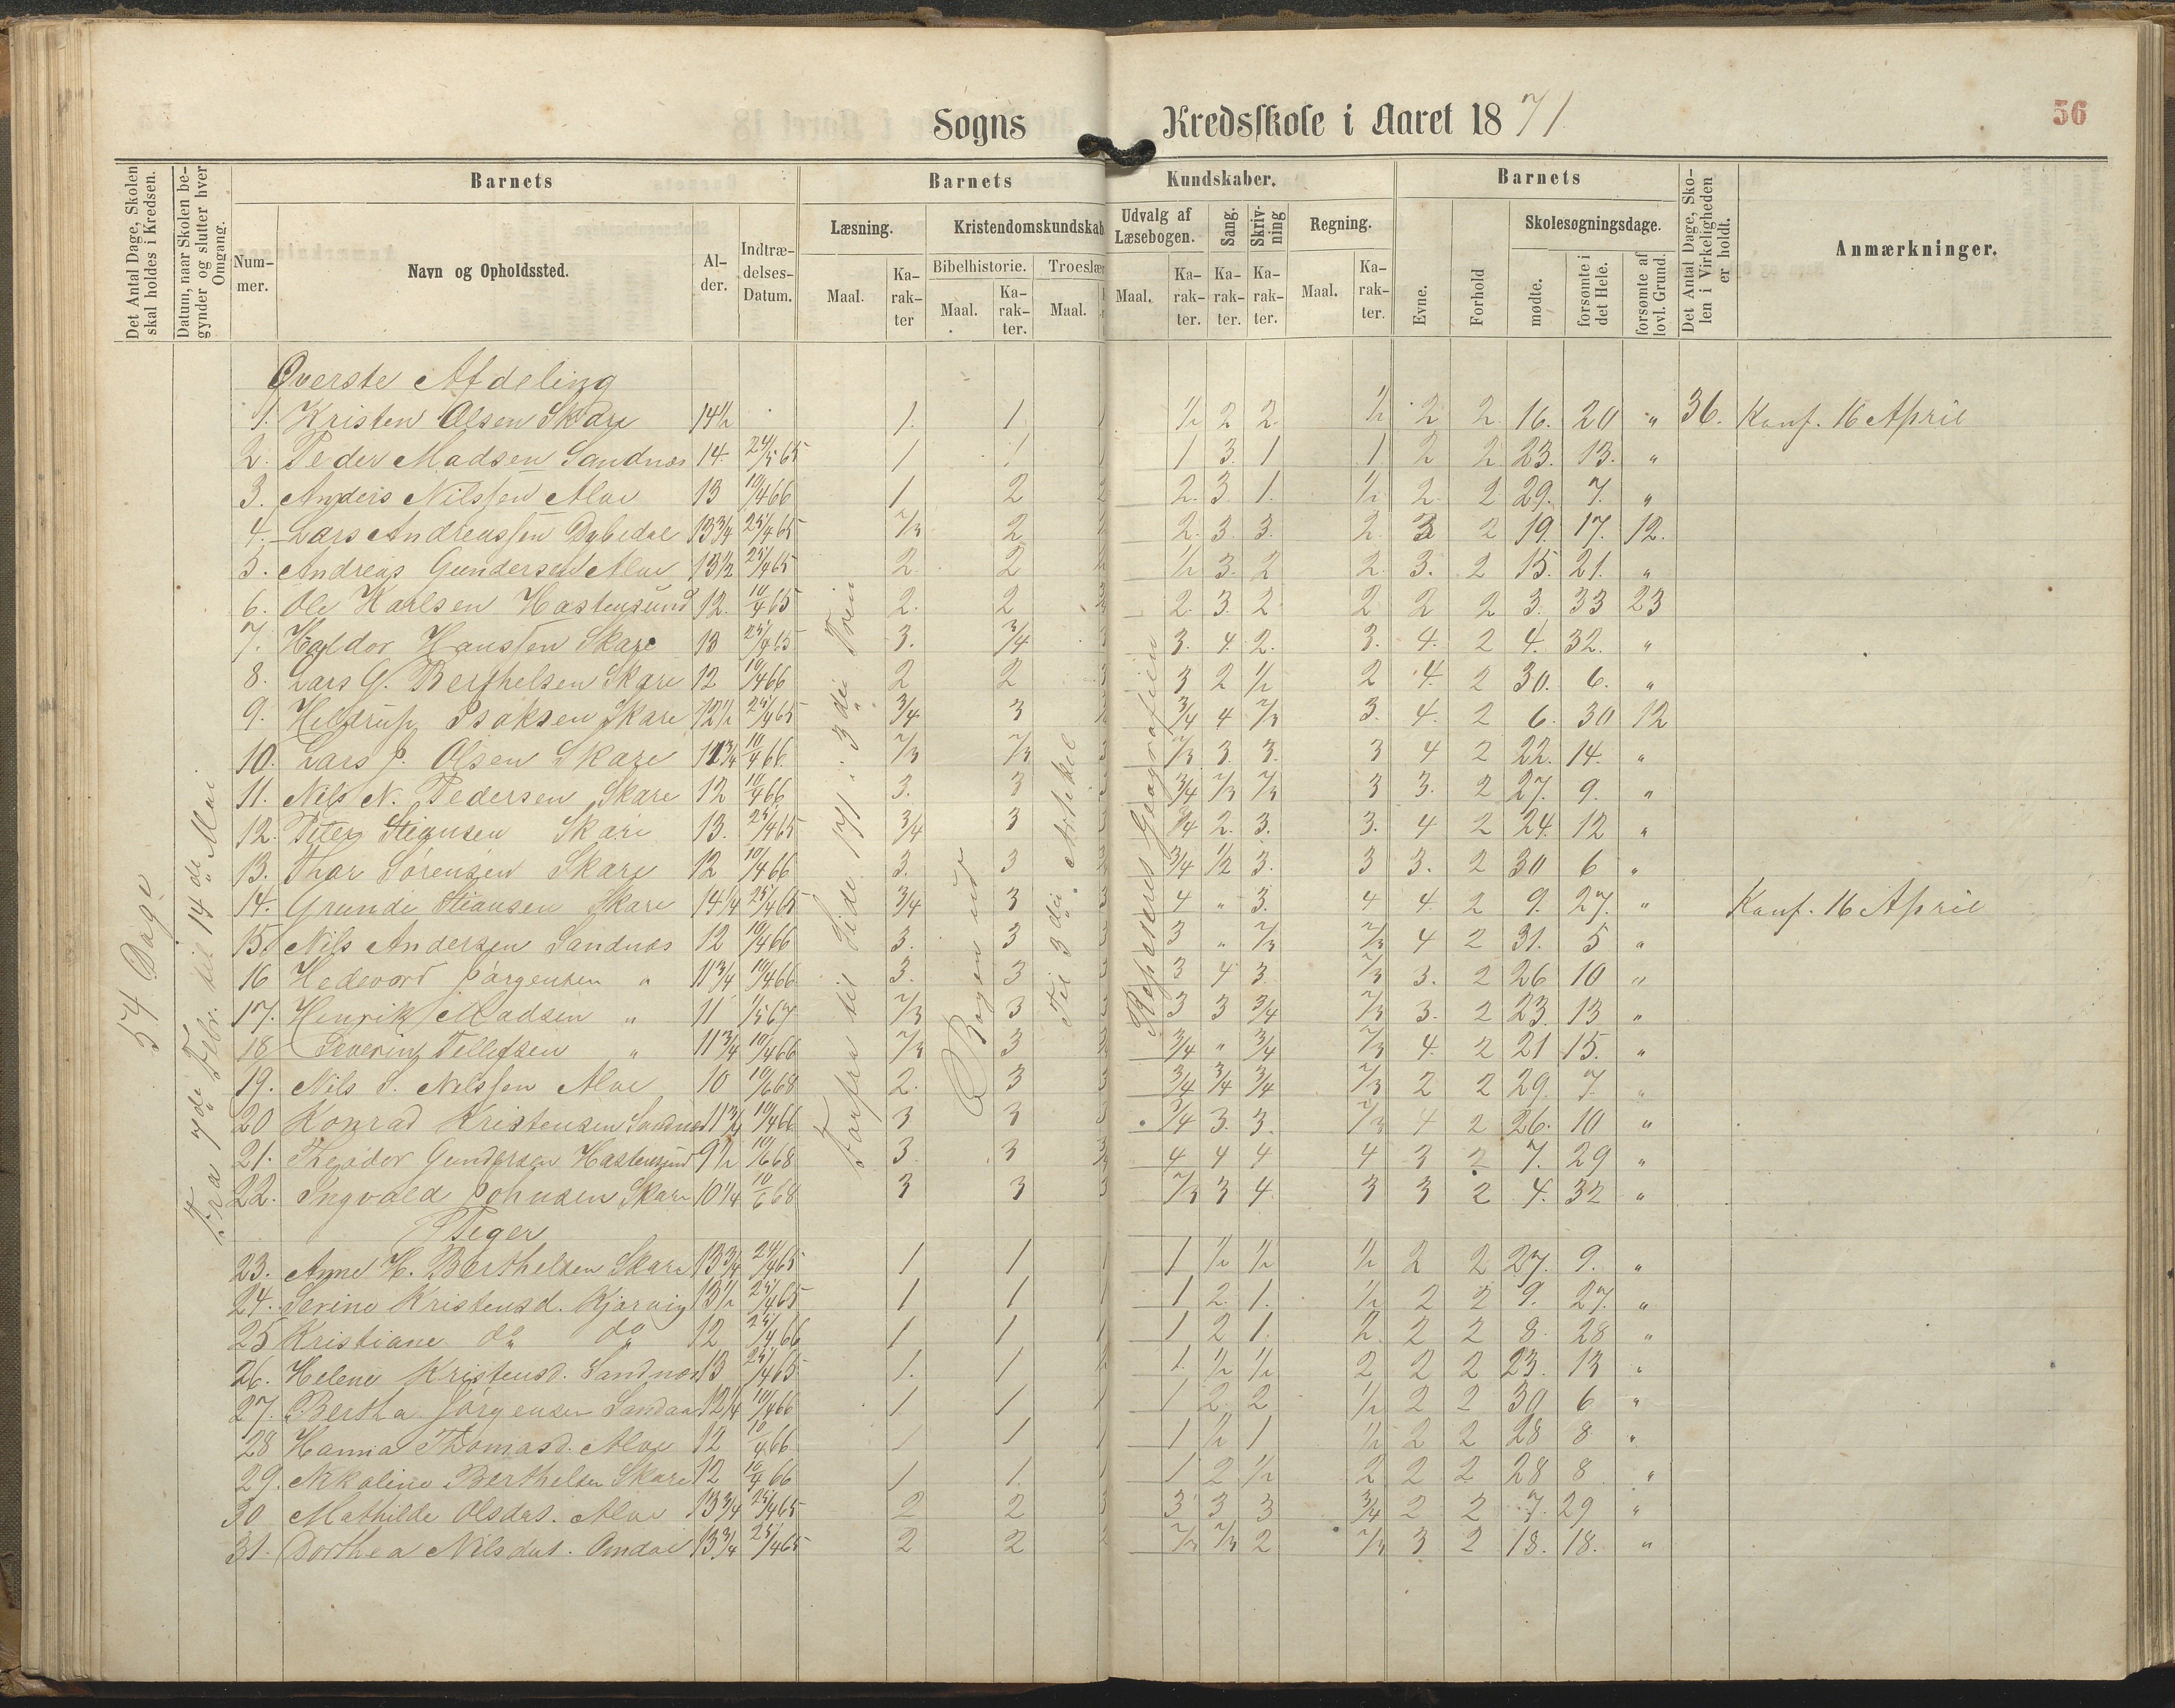 Sogns Kredsskole i Aaret 1871
56
Det Antal Dage, Skolen skal holdes i Kredsen.
Datum, naar Skolen begynder og slutter hver Omgang.
Barnets
Nummer.
Navn og Opholdssted.
Alder.
Indtrædelses-Datum.
Barnets Kundskaber.
Læsning.
Maal.
Karakter
Kristendomskundskab
Bibelhistorie.
Maal.
Karakter.
Troeslær
Maal.
Udvalg af Læsebogen.
Maal.
Karakter.
Sang.
Karakter.
Skrivning
Karakter.
Regning.
Maal.
Karakter.
Barnets
Evne.
Forhold
Skolesøgningsdage.
mødte.
forsømte i det Hele.
forsømte af lovl. Grund.
Det Antal Dage, Skolen i Virkeligheden er holdt.
Anmærkninger.
54 Dage
Fra 7de Febr. til 14de Mai
Forfra til Side 171 i 3die Trin
Bogen ud
Til 3die Artikel
Repeteret Geografien
Øverste Afdeling
1. Kristen Olsen Skare 14½ 1. 1. 1 ½ 2 2. ½ 2 2. 16. 20 " 36. Konf. 16 April
2. Peder Madsen Sandnæs 14. 24/5 65 1 1 1 1 3. 1 1 2 2. 23. 13. "
3. Anders Nilssen Alve 13 10/4 66 1 2 2. 3. 1. ½ 2. 2 29. 7. "
4. Lars Andreassen Dybedal 13¾ 25/4 65 2/3 2 2. 3. 3. 2. 3 2 19. 17. 12.
5. Andreas Gundersen Alve 13½ 25/4 65 2. 2 ½ 3. 2 2. 3. 2 15. 21. "
6. Ole Karlsen Hastensund 12. 10/4 65 2. 2 2. 3. 2 2 2 2 3. 33 23
7. Haldor Hanssen Skare 13 25/4 65 3. 3/4 3. 4. 2. 3. 4. 2 4. 32. "
8. Lars G. Berthelsen Skare 12 10/4 66 2 2 3 2 ½ 2 4. 2 30. 6. "
9. Heldrup Isaksen Skare 12½ 25/4 65 3/4 3 3/4 4 2/3 3. 4. 2 6. 30 12
10. Lars P. Olsen Skare 11¾ 10/4 66. 2/3 2/3 3 2/3 3. 3. 3 4 2 22. 14. "
11. Nils N. Pedersen Skare 12 10/4 66 3. 3 3/4 2/3 2/3 3 3. 2 27. 9. "
12. Peter Stiansen Skare 13. 25/4 65 3/4 3 3/4 2. 3. 3. 4 2 24. 12 "
13. Thor Sørensen Skare 12 10/4 66 3. 3 3/4 ½ 3. 3 3. 2 30 6 "
14. Grunde Stiansen Skare 14¼ 25/4 65 3/4 3 3 4 " 3. 4 4. 2 9. 27. " Konf. 16 April
15. Nils Andersen Sandnæs 12 10/4 66 3. 3 3 " 2/3 2/3 4 2 31. 5 "
16 Hedevord Jørgensen " 11¾ 10/4 66 3. 3 3 4 3. 2/3 3. 2 26 10 "
17. Henrik Madsen " 11 1/5 67 2/3 3 3 3 3/4 2/3 3. 2 23. 13 "
18 Severin Tellefsen " 11¾ 10/4 66 2/3 3 3/4 " 3/4 2/3 4. 2 21 15. "
19. Nils S. Nilssen Alve 10 10/6 68 2. 3 3/4 3/4 3/4 2/3 2 2 29. 7. "
20 Konrad Kristensen Sandnæs 11¾ 10/4 66 3 3 3/4 3. 3. 2/3 4 2 26. 10 "
21. Theodor Gundersen Hastensund 9½ 10/6 68 3. 3 4 4 4 4 3 2 7. 29 "
22. Ingvald Johnsen Skare 10¼ 10/6 68 3 3 3 2/3 3 4. 3 3 2 4. 32 "
Piger
23. Anne H. Berthelsen Skare 13¾ 24/4 65 1 1 1 ½ ½ ½ 2 2 27. 9. "
24. Serine Kristensd. Kjørvig 13½ 25/4 65 1 1 1 2. 1. ½ 2 2 9. 27. "
25 Kristiane do do 12 25/4 66 1 1 1 1 2 1. 2. 2 2 8. 28 "
26. Helene Kristensd. Sandnæs 13 25/4 65 1. 1 1. ½ ½ 2 2 2 23. 13 "
27. Bertha Jørgensen Sandaa 12¼ 10/4 66 1 1 1 1 2 2 ½ 2 2 30 6 "
28 Hanna Thomasd. Alve 12 10/4 66 1 1 1 1 ½ 1 ½ 2 2 28 8 "
29. Nikoline Berthelsen Skare 12 10/4 66 1 1. 1 1 2 ½ 2 2 2 28 8 "
30 Mathilde Olsdat. Alve 13¾ 25/4 65 2 2 3 3 3 3 3/4 2 2 7. 29 "
31. Dorthea Nilsdat. Omdal 13¾ 25/4 65 2 2 2/3 2/3 2 2/3 3 2 18. 18. "